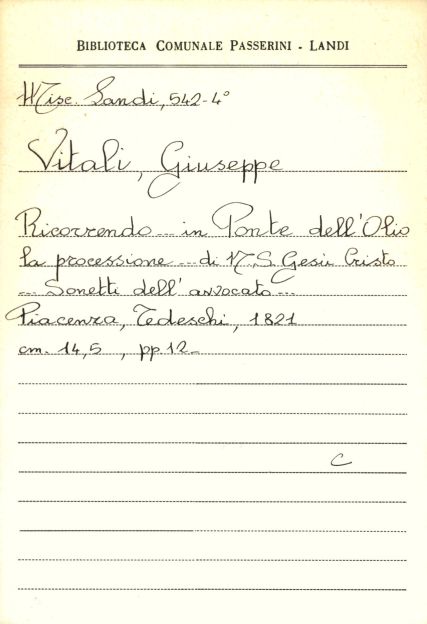 BIBLIOTECA COMUNALE PASSERINI - LANDI
Misc. Landi, 542-4°
Vitali, Giuseppe
Ricorrendo ... in Ponte dell'Olio
la processione ... di N.S. Gesù Cristo
... Sonetti dell'avvocato ...
Piacenza, Tedeschi, 1821
cm. 14,5 , pp. 12_
C